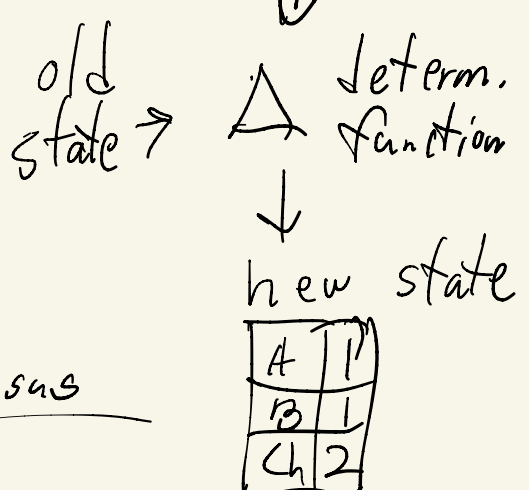 old
state →
determ.
function
new state
A 1
B 1
Ch 2
sus